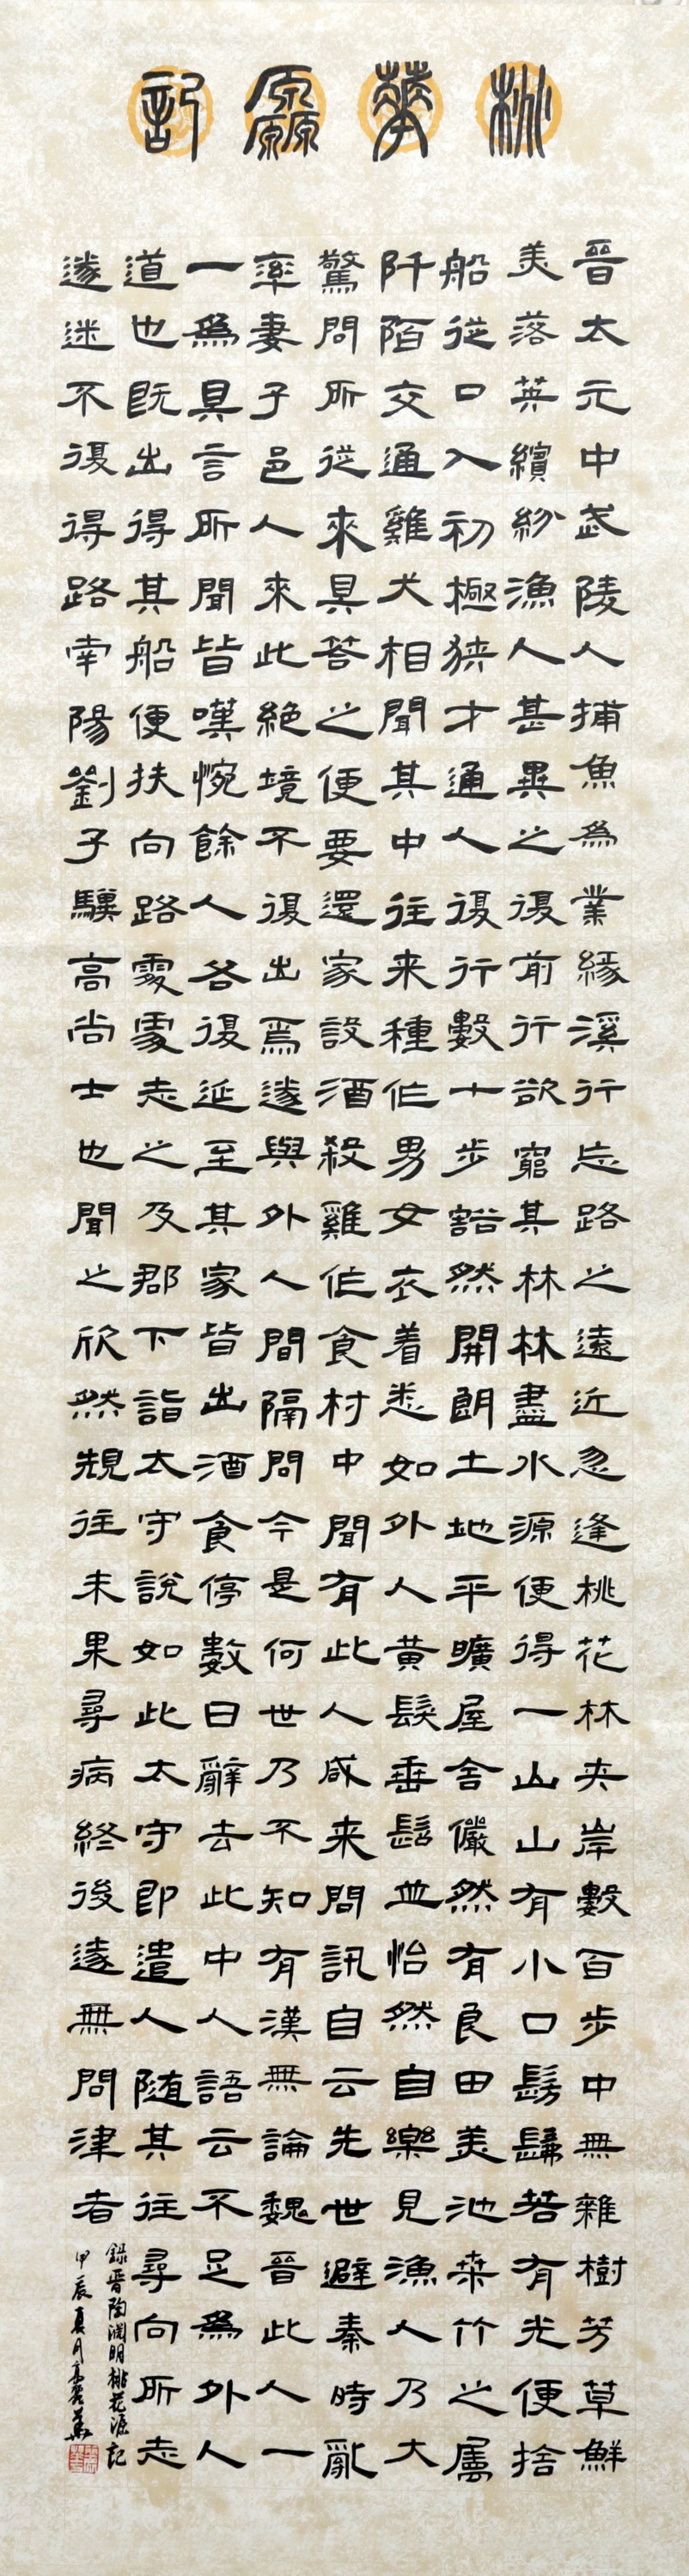 桃華厵記
晉太元中武陵人捕魚爲業緣溪行忘路之遠近忽逢桃花林夾岸數百步中無雜樹芳草鮮
美落英繽紛漁人甚異之復前行欲窮其林林盡水源便得一山山有小口髣髴若有光便捨
船從口入初極狹才通人復行數十步豁然開朗土地平曠屋舍儼然有良田美池桑竹之屬
阡陌交通雞犬相聞其中往来種作男女衣着悉如外人黃髮垂髫並怡然自樂見漁人乃大
驚問所從來具答之便要還家設酒殺雞作食村中聞有此人咸来問訊自云先世避秦時亂
率妻子邑人來此絕境不復出焉遂與外人間隔問今是何世乃不知有漢無論魏晉此人一
一爲具言所聞皆嘆惋餘人各復延至其家皆出酒食停數日辭去此中人語云不足爲外人
道也既出得其船便扶向路處處志之及郡下詣太守說如此太守即遣人随其往尋向所志
遂迷不復得路南陽劉子驥高尚士也聞之欣然規往未果尋病終後遂無問津者
錄晉陶淵明桃花源記
甲辰夏月